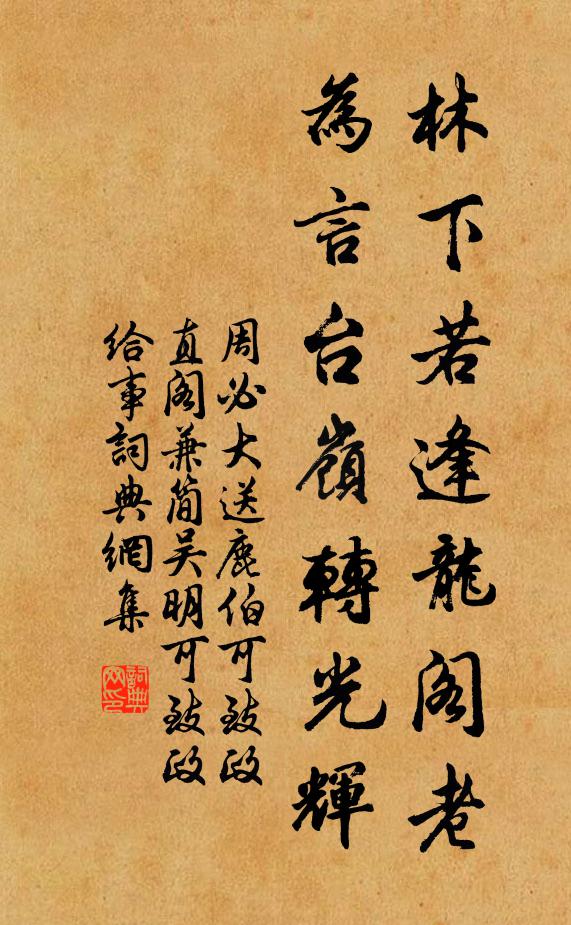 林下若逢龍阁老
為言台嶺轉光輝
周必大送鹿伯可致政
直阁兼简吴明可致政
给事詞典網集
詞典
网印